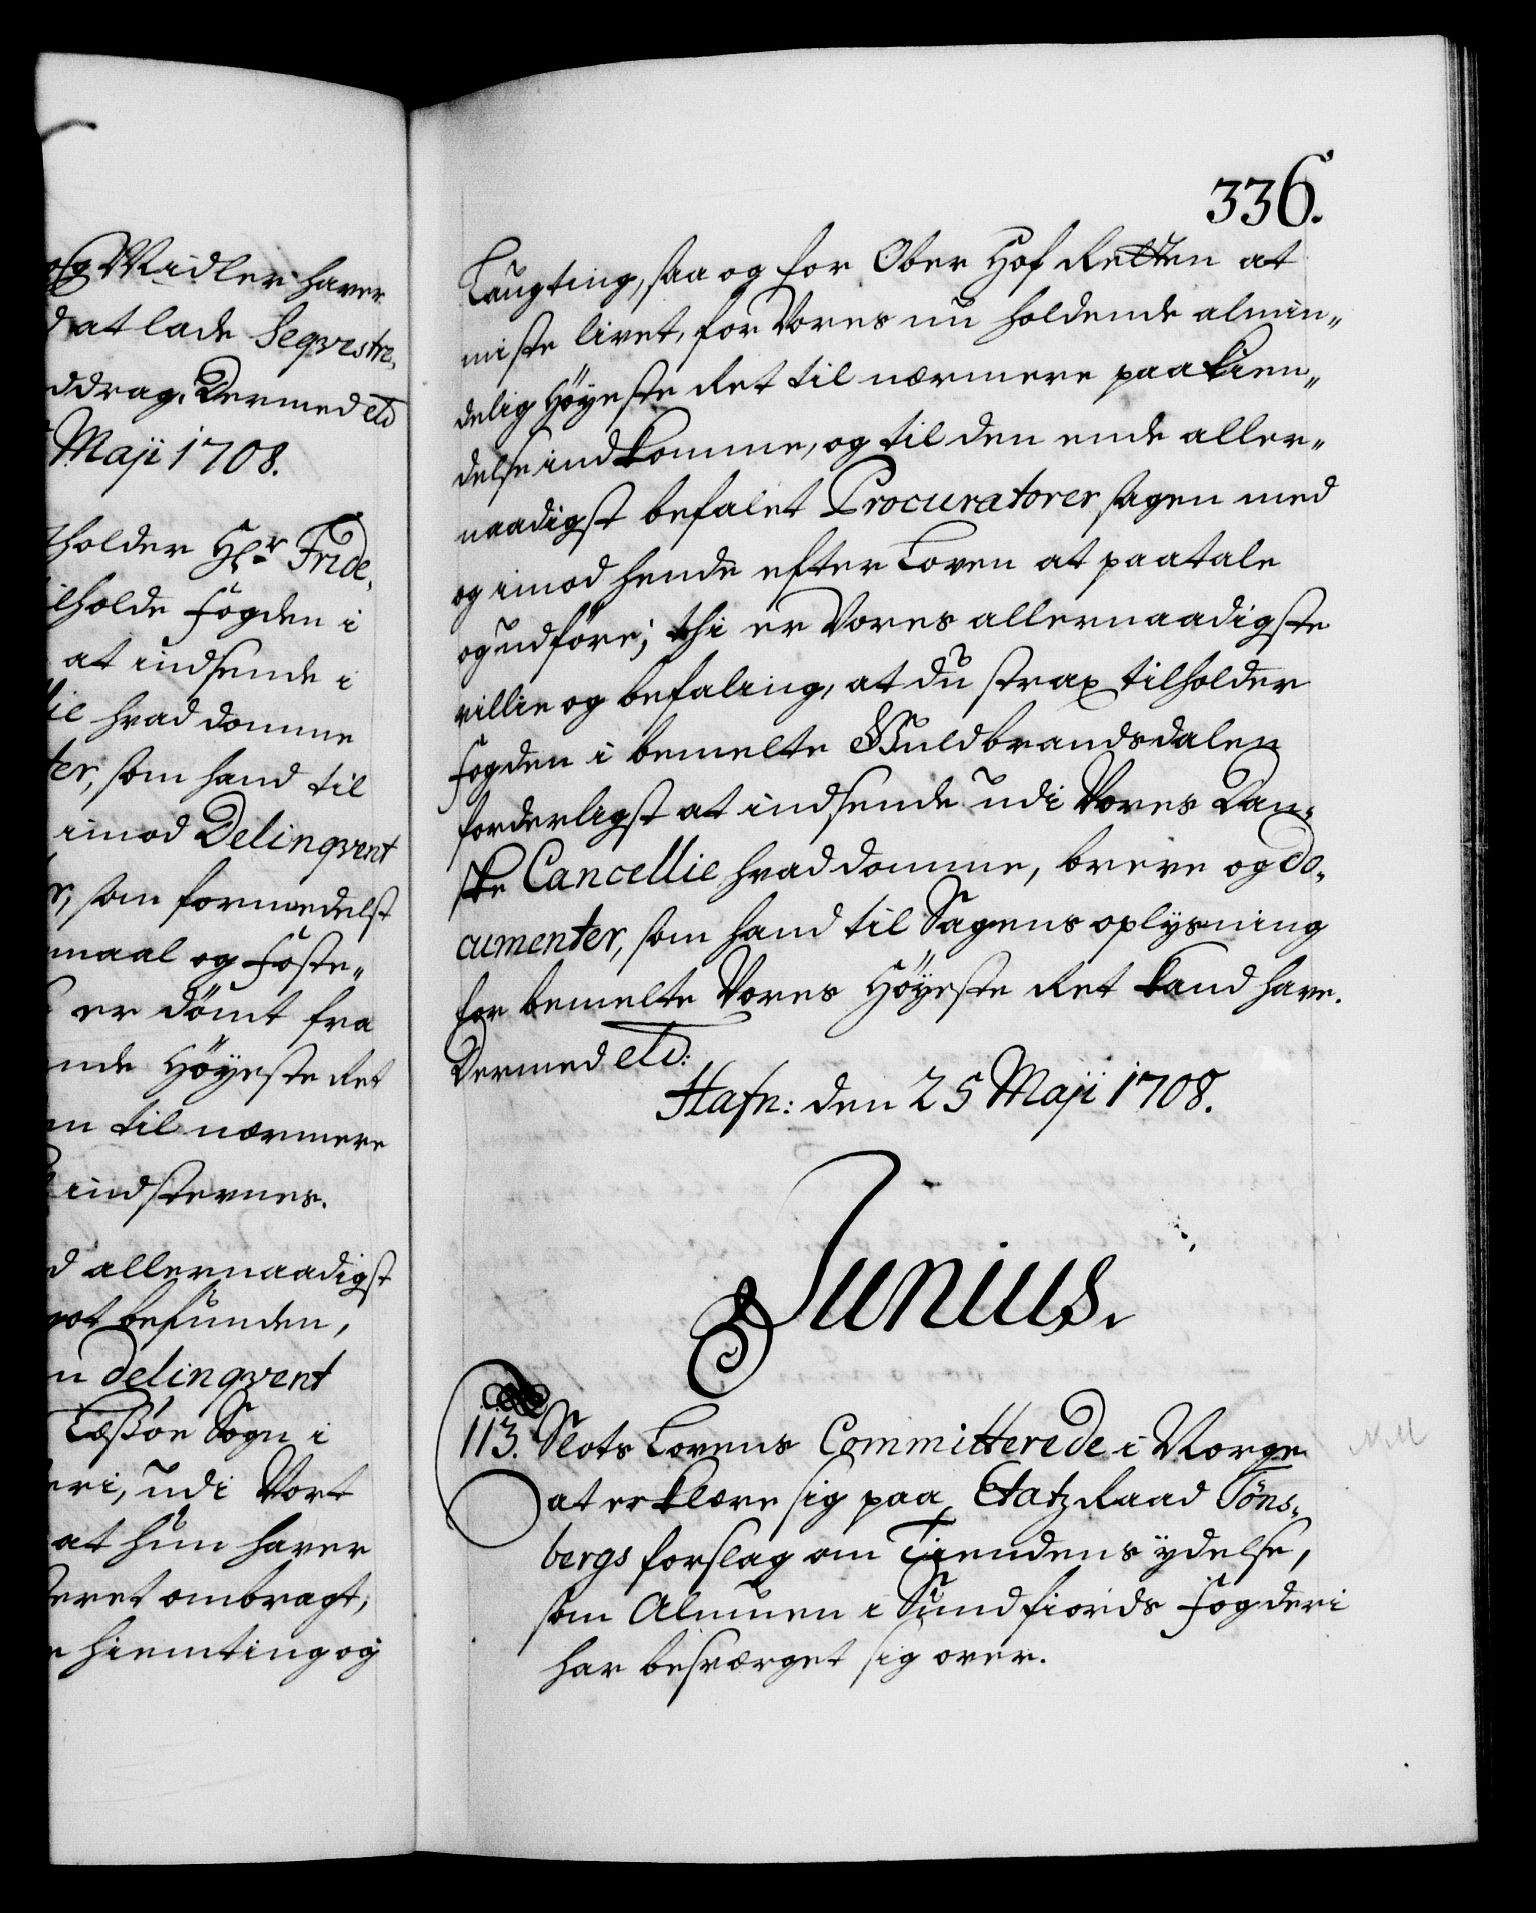 og Midler haver
d at lade Seqvestre,
ddrag. Dermed etc
Maji 1708.
holder Hr Fride,
ilholde Fogden i
at indsende i
lie hvad domme
ter, som hand til
imod Delinqvent
r, som formedelst
maal og Foste,,
er dömt fra
nde Höyeste Ret
en til nærmere
indstevnes.
d allernaadigst
got befunden,
n delinqvent
Læssöe Sogn i
eri, udi Vort
at hun haver
teret ombragt,
e hiemting og
336.
Laugting, saa og for Ober Hof Retten at
miste livet, for Vores nu holdende almin,,
delig Höyeste Ret til nærmere paakien,,
delse indkomme, og til den ende aller,,
naadigst befalet Procuratorer sagen med
og imod hende efter Loven at paatale
og udföre; thi er Vores allernaadigste
villie og befaling, at du strax tilholder
Fogden i bemelte Guldbrandsdalen
forderligst at indsende udi Vores Dan,
ske Cancellie hvad domme, breve og do,
cumenter, som hand til Sagens oplysning
for bemelte Vores Höyeste Ret kand have.
Dermed etc:
Hafn: den 25 Maji 1708.
Junius.
113. Slots Lovens Committerede i Norge
at erklære sig paa Etatz Raad Töns,
bergs forslag om Tiendens ÿdelse,
som Almuen i Sundfiords Fogderi
har besværget sig over.